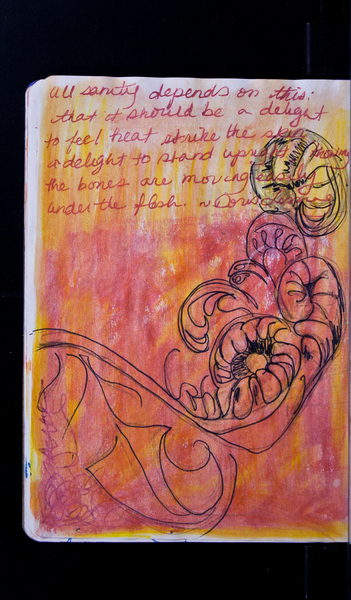 all sanity depends on this:
that it should be a delight
to feel heat strike the skin
a delight to stand upright knowing
the bones are moving easily
under the flesh. ~ Doris Lessing